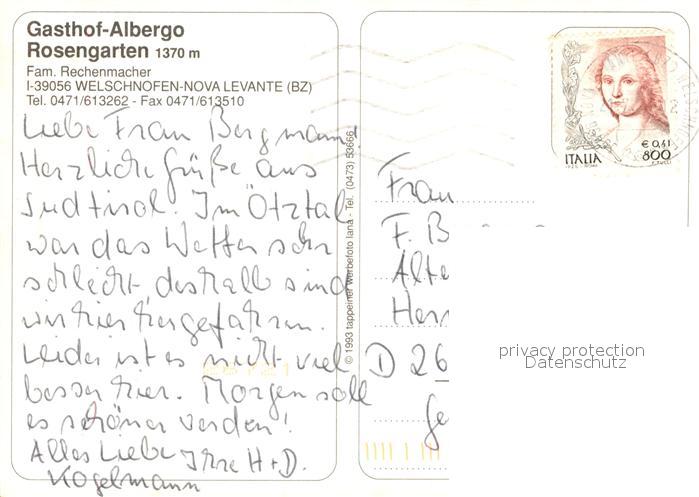 Gasthof-Albergo
Rosengarten 1370 m
Fam. Rechenmacher
I-39056 WELSCHNOFEN-NOVA LEVANTE (BZ)
Tel. 0471/613262 - Fax 0471/613510
Liebe Frau Bergmann
Herzliche Grüße aus
Südtirol. Im Ötztal
war das Wetter sehr
schlecht, deshalb sind
wir hier hergefahren.
Leider ist es nicht viel
besser hier. Morgen soll
es schöner werden!
Alles Liebe Ihre H+D.
Kogelmann
© 1993 tappeiner werbefoto lana - Tel. (0473) 53666
ITALIA
€ 0,41
800
Frau
F. B
Alte
Herr
D 26
privacy protection
Datenschutz